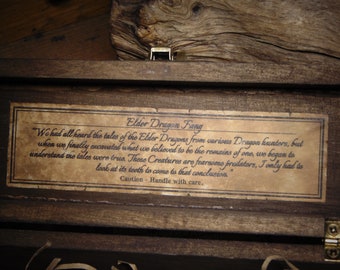 Elder Dragon Fang
"We had all heard the tales of the Elder Dragons from various Dragon hunters, but
when we finally excavated what we believed to be the remains of one, we began to
understand the tales were true. These Creatures are fearsome predators, I only had to
look at its tooth to come to that conclusion."
Caution - Handle with care.